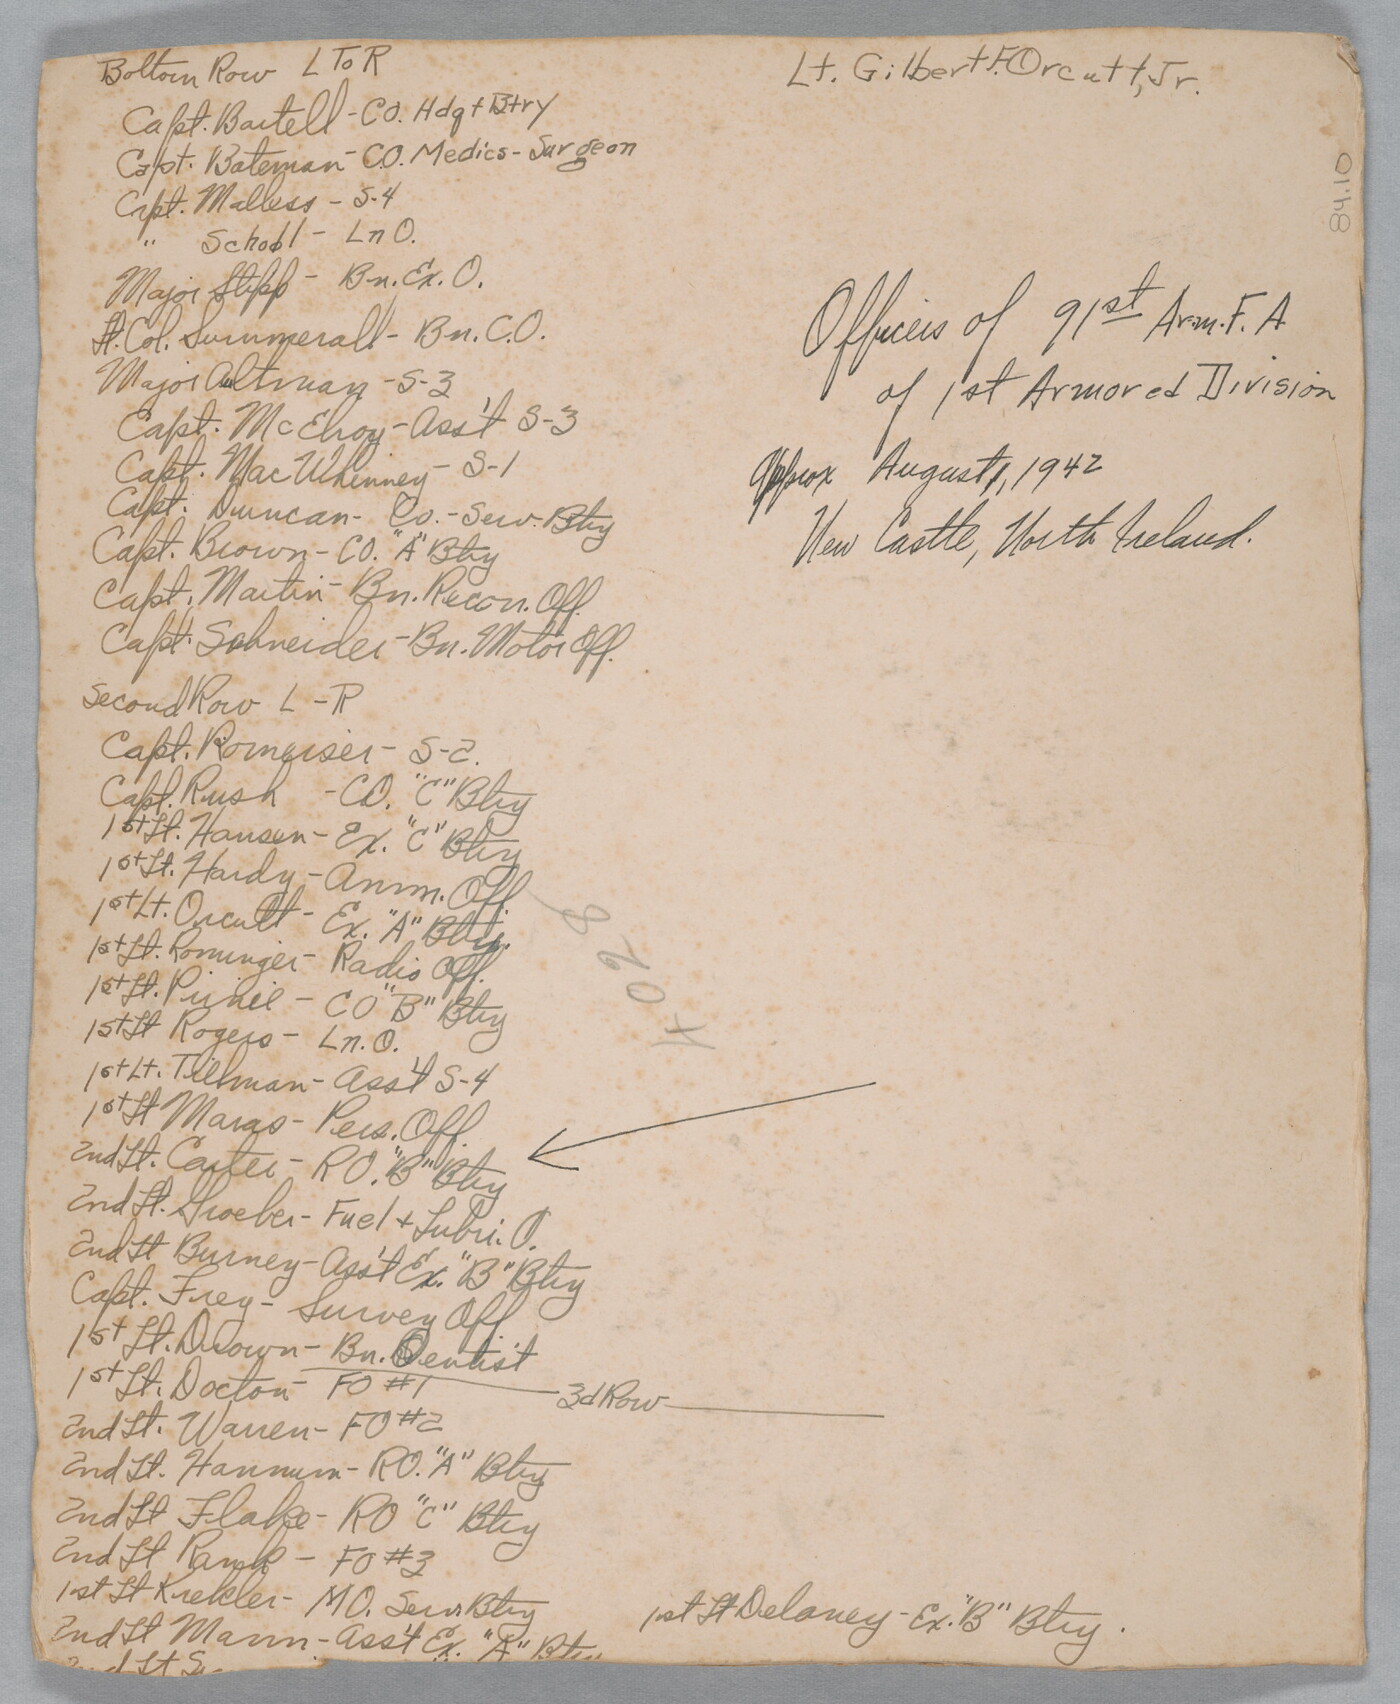 Bottom Row L To R
Capt. Bartell - CO. Hdqt Btry
Capt. Bateman - C.O. Medics - Surgeon
Capt. Malless - S-4
" Schobl - Ln O.
Major Stipp - Bn. Ex. O.
Lt. Col. Summerall - Bn. C.O.
Major Altman - S-3
Capt. McElroy - Ass't S-3
Capt. MacWhinney - S-1
Capt. Duncan - Co. - Serv. Btry
Capt. Brown - CO. "A" Btry
Capt. Martin - Bn. Recon. Off.
Capt. Schneider - Bn. Motor Off.
Second Row L - R
Capt. Romerser - S-2.
Capt. Rush - CO. "C" Btry
1st Lt. Hansen - Ex. "C" Btry
1st Lt. Hardy - Amm. Off.
1st Lt. Orcutt - Ex. "A" Btry.
1st Lt. Rominger - Radio Off.
1st Lt. - CO "B" Btry
1st Lt Rogers - Ln. O.
1st Lt. Tillman - Ass't S-4
1st Lt Maras - Pers. Off.
2nd Lt. Carter - RO. "B" Btry
2nd Lt. Groeber - Fuel + Lubri. O.
2nd Lt Burney - Ass't Ex. "B" Btry
Capt. Frey - Survey Off
1st Lt. Drown - Bn. Dentist
1st Lt. Docton - FO #1
3d Row
2nd Lt. Warren - FO #2
2nd Lt. Hannum - RO. "A" Btry
2nd Lt Flake - RO "C" Btry
2nd Lt Rank - FO #3
1st Lt Krekler - MO. Serv Btry
2nd Lt Mann - Ass't Ex. "A" Btry
2nd Lt
Lt. Gilbert F. Orcutt, Jr.
84.10
Officers of 91st Arm. F. A
of 1st Armored Division
Approx August, 1942
New Castle, North Ireland.
4028
1st Lt Delaney - Ex. "B" Btry.